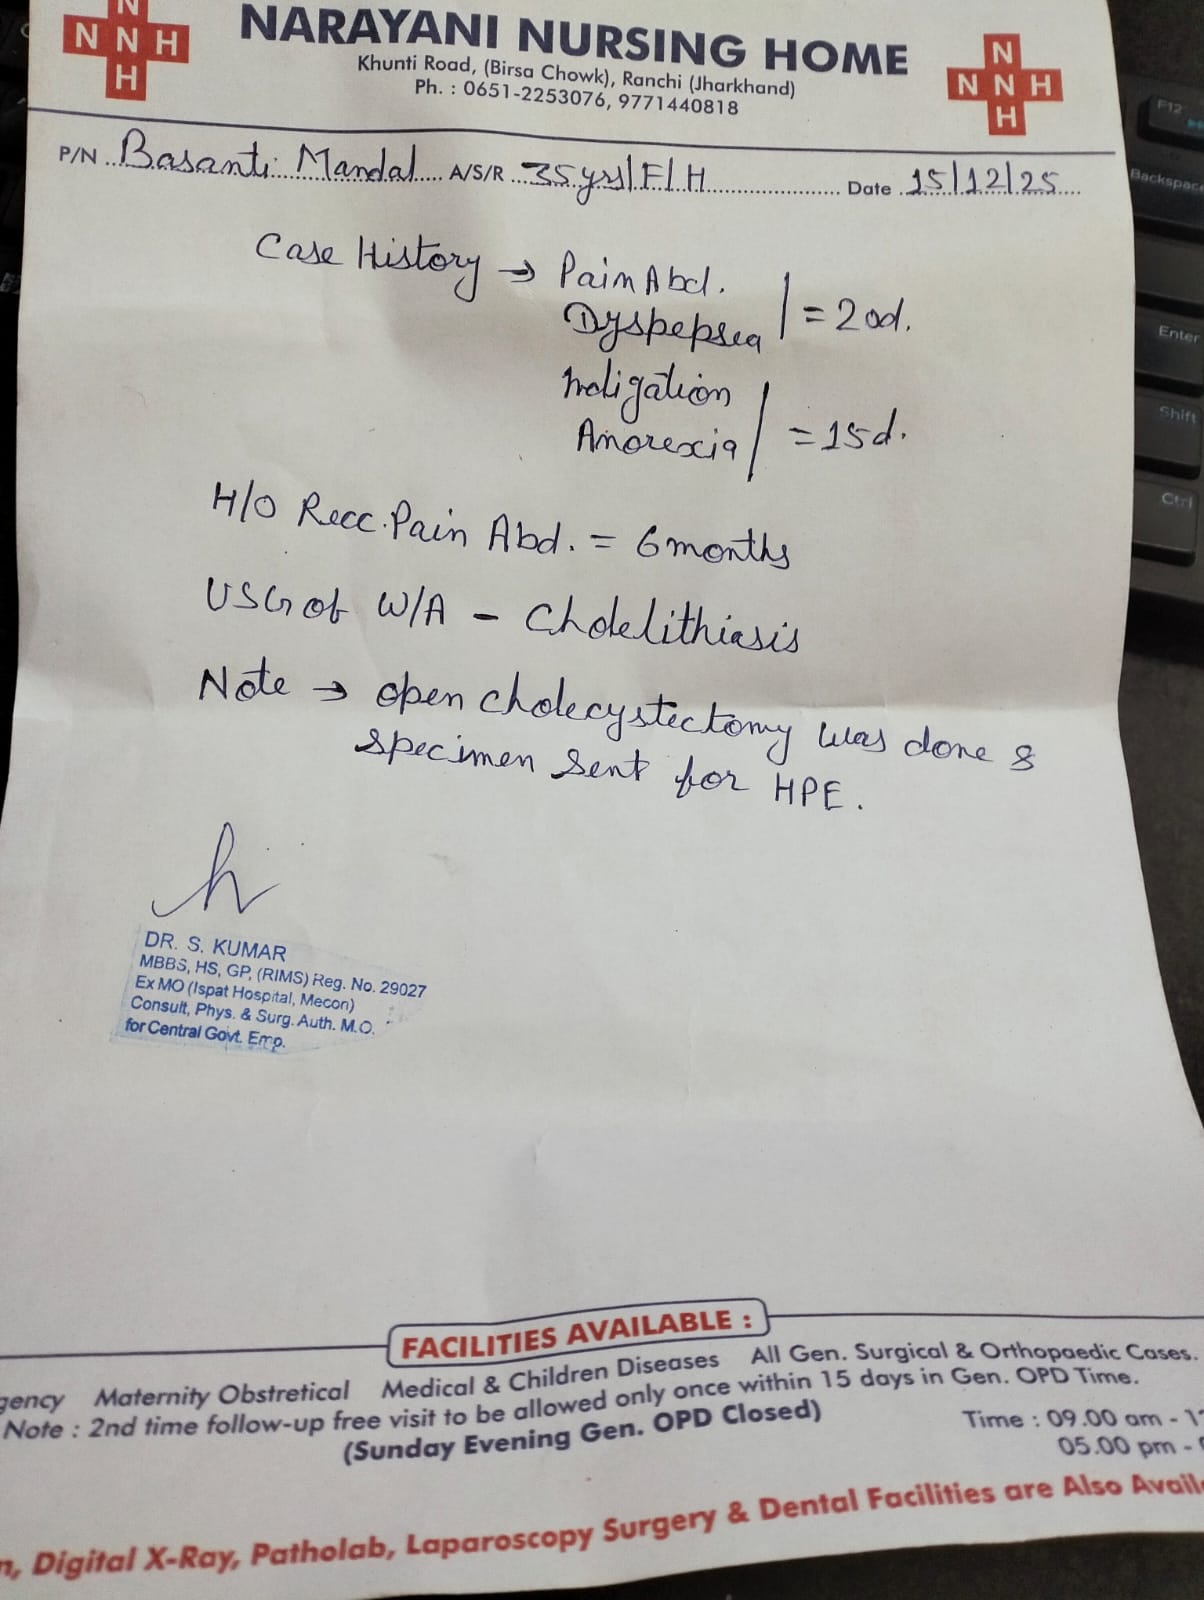 N
N N H
H
NARAYANI NURSING HOME
Khunti Road, (Birsa Chowk), Ranchi (Jharkhand)
Ph. : 0651-2253076, 9771440818
N
N N H
H
P/N Basanti Mandal A/S/R 35yrs/F/H Date 15/12/25
Case History → Pain Abd.
Dyspepsea = 20d.
Indigation
Anorexia = 15d.
H/O Recc. Pain Abd. = 6 months
USG of W/A - Cholelithiasis
Note → open cholecystectomy was done &
specimen sent for HPE.
DR. S. KUMAR
MBBS, HS, GP, (RIMS) Reg. No. 29027
Ex MO (Ispat Hospital, Mecon)
Consult, Phys. & Surg. Auth. M.O.
for Central Govt. Emp.
FACILITIES AVAILABLE :
gency Maternity Obstretical Medical & Children Diseases All Gen. Surgical & Orthopaedic Cases.
Note : 2nd time follow-up free visit to be allowed only once within 15 days in Gen. OPD Time.
(Sunday Evening Gen. OPD Closed)
Time : 09.00 am - 1
05.00 pm -
n, Digital X-Ray, Patholab, Laparoscopy Surgery & Dental Facilities are Also Avail
F12
Backspac
Enter
Shift
Ctrl